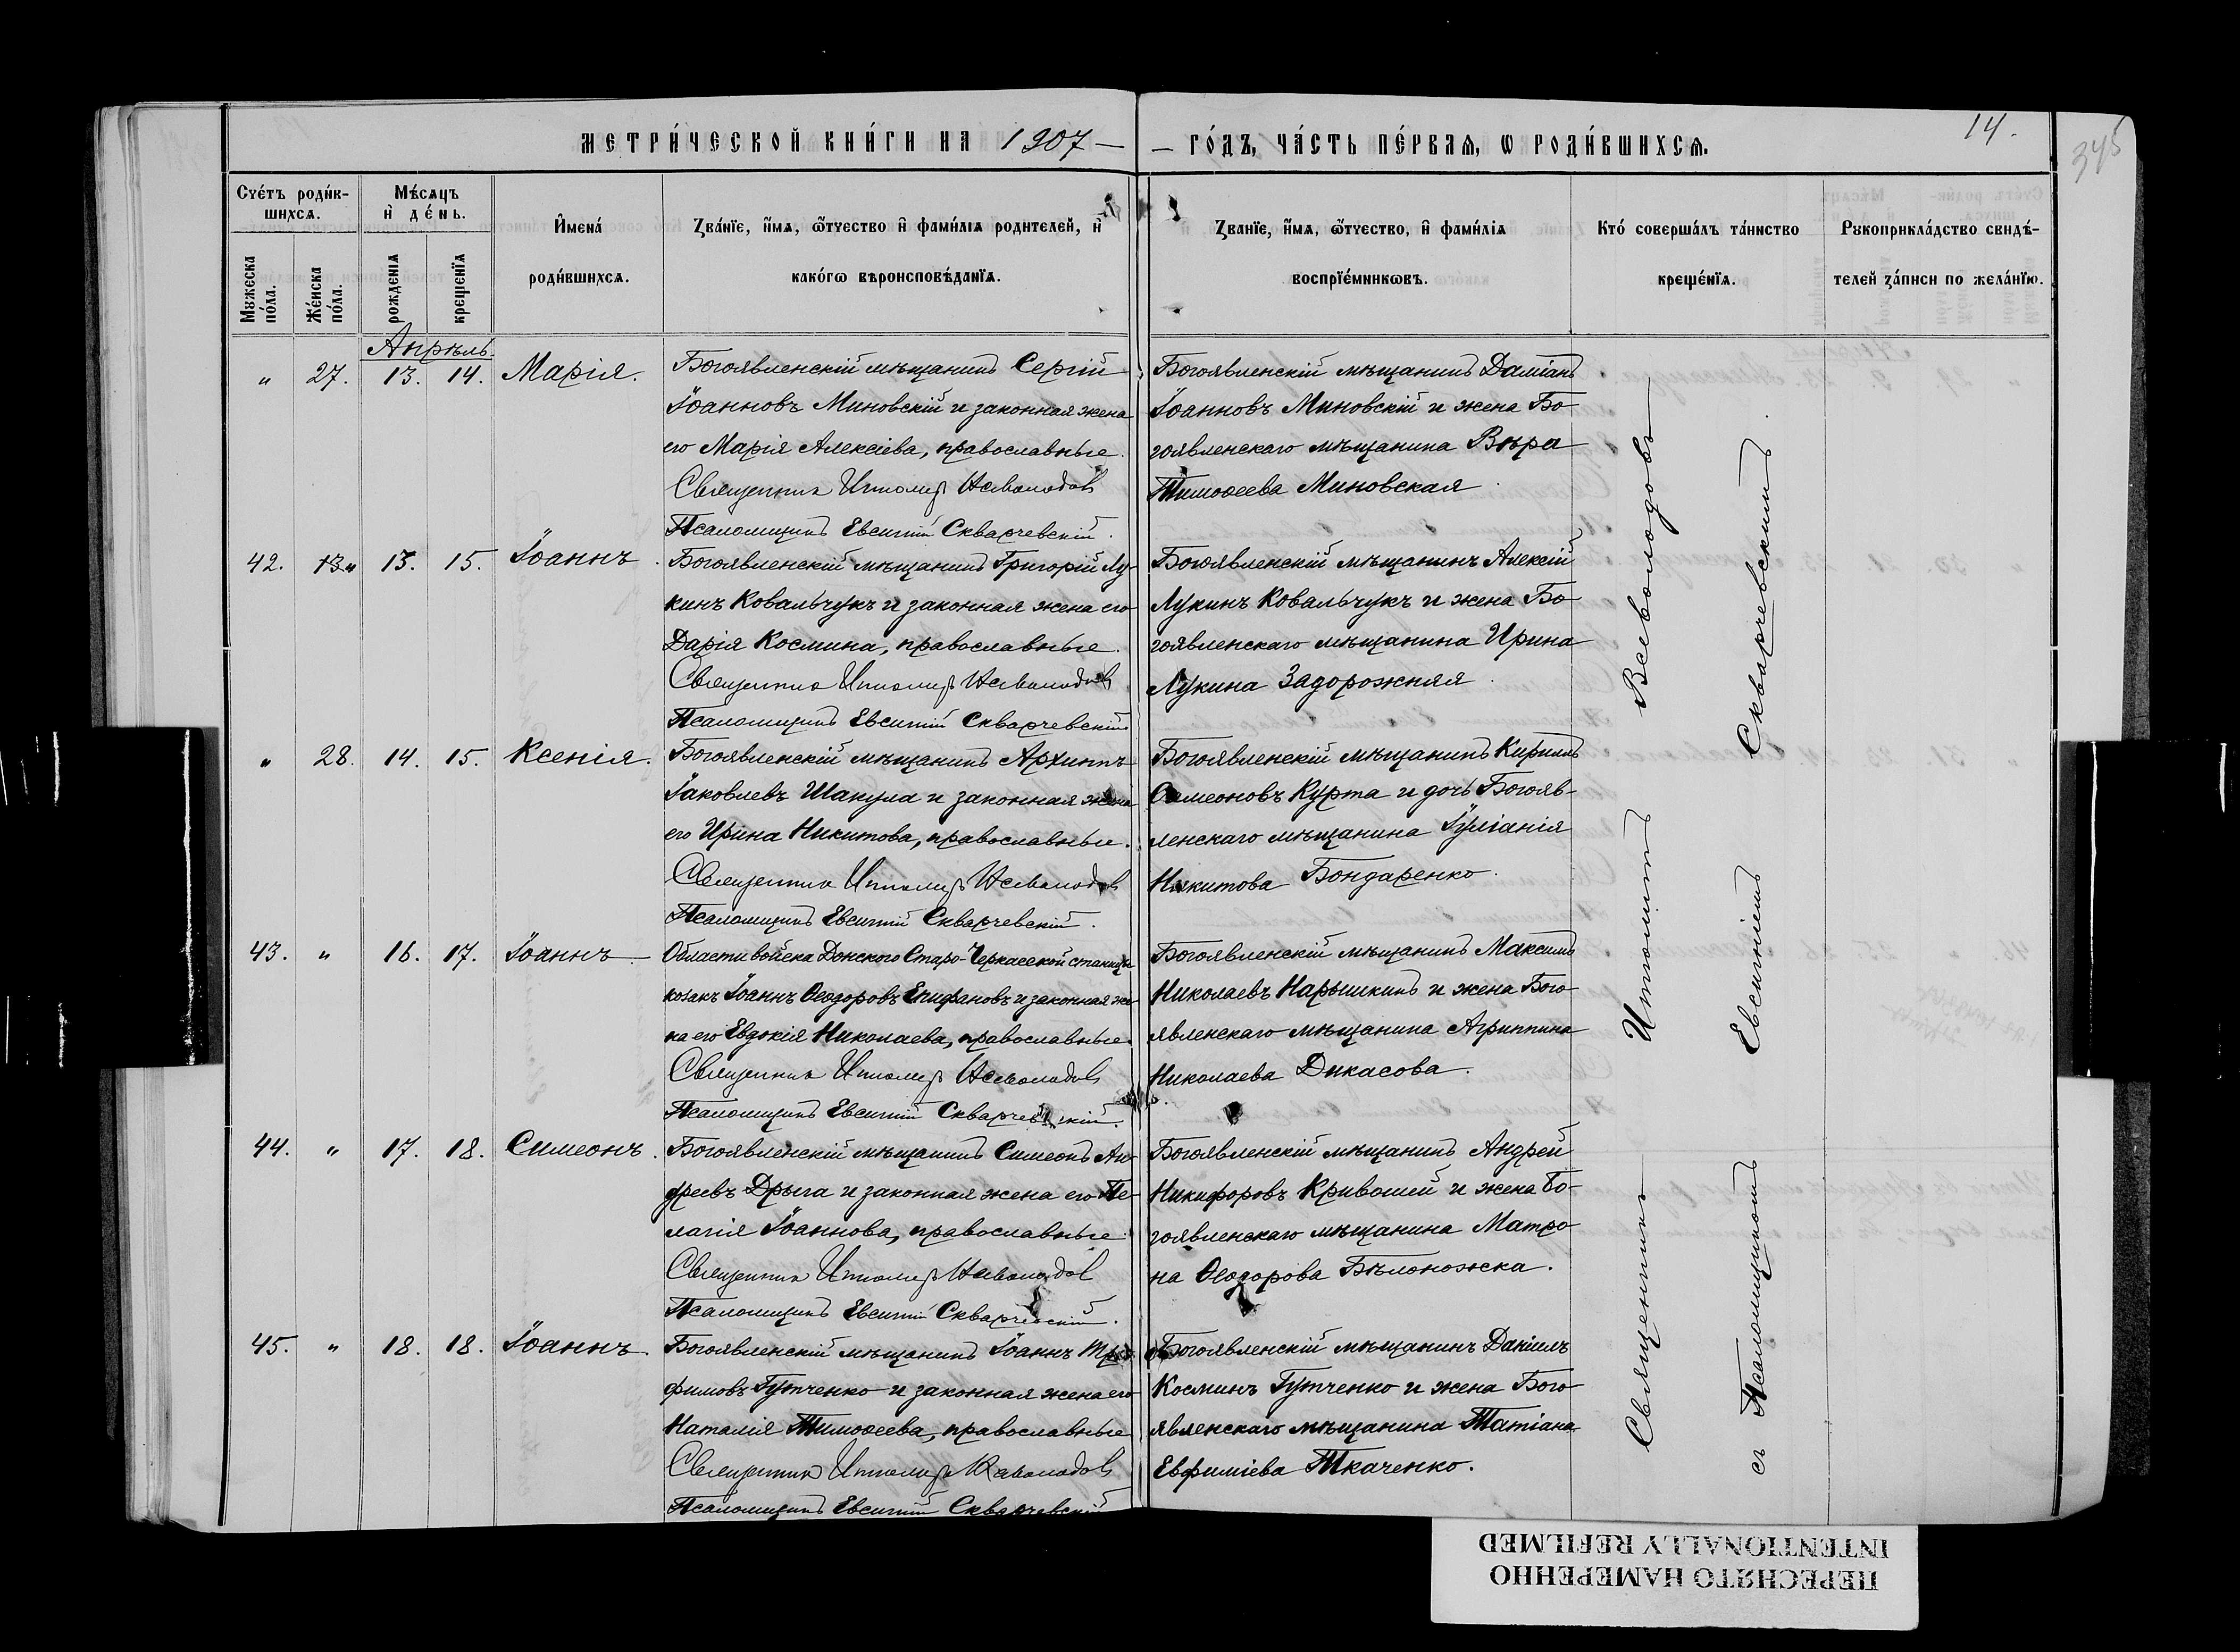 МЕТРИ́ЧЕСКОЙ КНИ́ГИ НА 1907 —
— ГО́ДЪ, ЧА́СТЬ ПЕ́РВАѦ, Ѡ РОДИ́ВШИХСѦ.
14.
345
Сче́тъ роди́в-
шихсѧ.
Мѣ́сѧцъ
и҆ де́нь.
И҆мена́
роди́вшихсѧ.
Зва́нїе, и҆́мѧ, ѻ҆́тчество и҆ фами́лїѧ родителей, и҆
како́гѡ вѣроисповѣ́данїѧ.
Зва́нїе, и҆́мѧ, ѻ҆́тчество, и҆ фами́лїѧ
воспрїе́мникѡвъ.
Кто̀ соверша́лъ та́инство
креще́нїѧ.
Рукоприкла́дство свидѣ́-
телей за́писи по жела́нїю.
Мужеска
по́ла.
Же́нска
по́ла.
рожденїѧ
крещенїѧ
Апрѣль.
„ 27. 13. 14. Марія.
Богоявленскій мѣщанинъ Сергій
Іоанновъ Миновскій и законная жена
его Марія Алексіева, православные.
Священникъ Ипполитъ Всеволодовъ
Псаломщикъ Евсигній Скварчевскій.
Богоявленскій мѣщанинъ Даміанъ
Іоанновъ Миновскій и жена Бо-
гоявленскаго мѣщанина Вѣра
Тимоѳеева Миновская.
42. 13„ 13. 15. Іоаннъ.
Богоявленскій мѣщанинъ Григорій Лу-
кинъ Ковальчукъ и законная жена его
Дарія Космина, православные.
Священникъ Ипполитъ Всеволодовъ
Псаломщикъ Евсигній Скварчевскій
Богоявленскій мѣщанинъ Алексій
Лукинъ Ковальчукъ и жена Бо-
гоявленскаго мѣщанина Ирина
Лукина Задорожняя.
„ 28. 14. 15. Ксенія.
Богоявленскій мѣщанинъ Архиппъ
Іаковлевъ Шакула и законная жена
его Ирина Никитова, православные.
Священникъ Ипполитъ Всеволодовъ
Псаломщикъ Евсигній Скварчевскій.
Богоявленскій мѣщанинъ Кириллъ
Симеоновъ Курта и дочь Богояв-
ленскаго мѣщанина Іуліанія
Никитова Бондаренко.
43. „ 16. 17. Іоаннъ.
Области войска Донского Старо-Черкасской станицы
козакъ Іоаннъ Ѳеодоровъ Епифановъ и законная же-
на его Евдокія Николаева, православные.
Священникъ Ипполитъ Всеволодовъ
Псаломщикъ Евсигній Скварчевскій.
Богоявленскій мѣщанинъ Максимъ
Николаевъ Нарышкинъ и жена Бого-
явленскаго мѣщанина Агриппина
Николаева Дикасова.
44. „ 17. 18. Симеонъ.
Богоявленскій мѣщанинъ Симеонъ Ан-
дреевъ Дрыга и законная жена его Пе-
лагія Іоаннова, православные.
Священникъ Ипполитъ Всеволодовъ
Псаломщикъ Евсигній Скварчевскій.
Богоявленскій мѣщанинъ Андрей
Никифоровъ Кривошей и жена Бо-
гоявленскаго мѣщанина Матро-
на Ѳеодорова Бѣлоножска.
45. „ 18. 18. Іоаннъ.
Богоявленскій мѣщанинъ Іоаннъ Тро-
фимовъ Гутченко и законная жена его
Наталія Тимоѳеева, православные
Священникъ Ипполитъ Всеволодовъ
Псаломщикъ Евсигній Скварчевскій
Богоявленскій мѣщанинъ Даніилъ
Косминъ Гутченко и жена Бого-
явленскаго мѣщанина Татіана
Евфиміева Ткаченко.
Священникъ Ипполитъ Всеволодовъ
съ Псаломщикомъ Евсигніемъ Скварчевскимъ.
ПЕРЕСНЯТО НАМЕРЕННО
INTENTIONALLY REFILMED